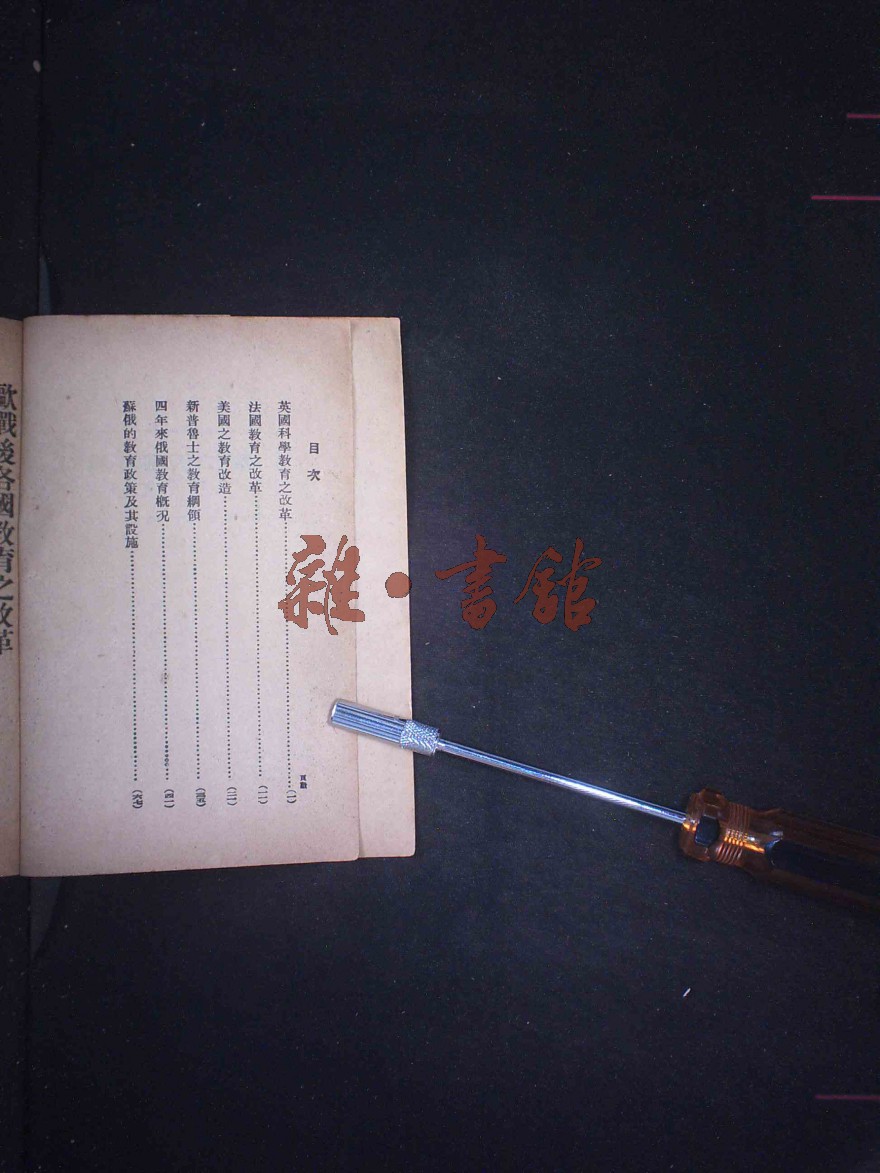 目次
頁數
英國科學教育之改革……(一)
法國教育之改革……(二一)
美國之教育改造……(三一)
新普魯士之教育綱領……(三五)
四年來俄國教育概況……(四一)
蘇俄的教育政策及其設施……(六七)
歐戰後各國教育之改革
雜·書館